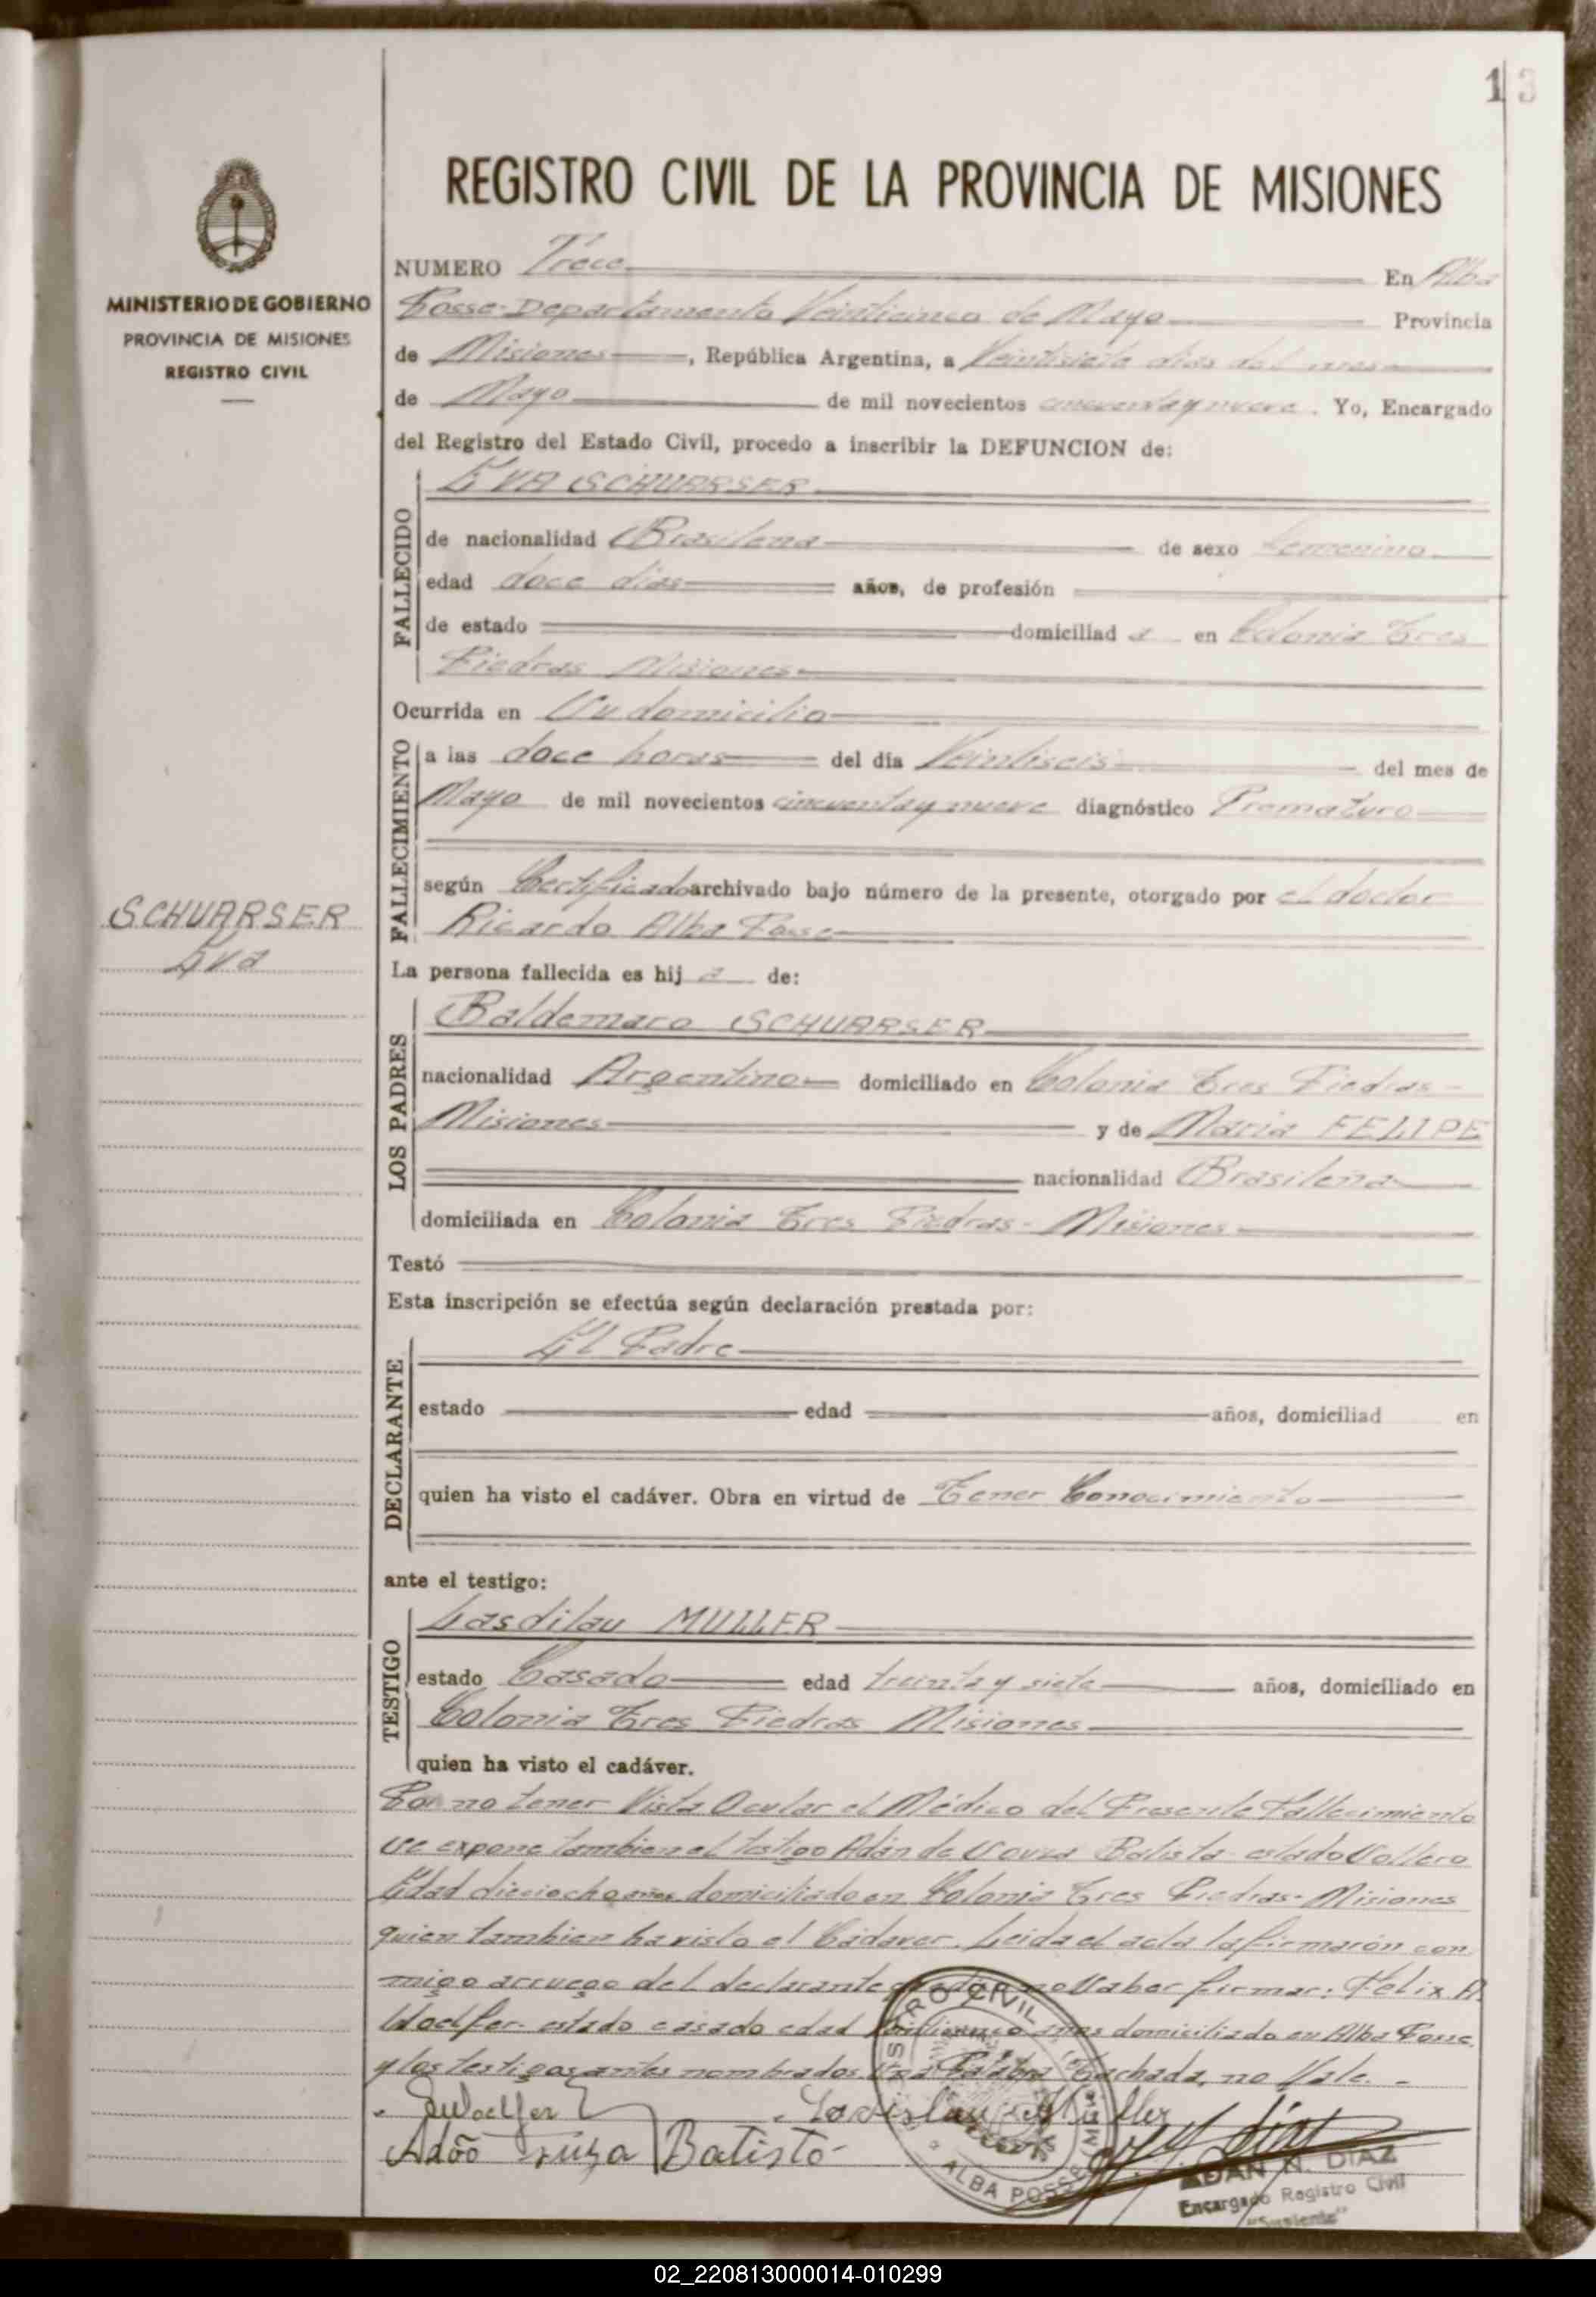 13
REGISTRO CIVIL DE LA PROVINCIA DE MISIONES
MINISTERIO DE GOBIERNO
PROVINCIA DE MISIONES
REGISTRO CIVIL
NUMERO Trece En Alba
Posse-Departamento Veinticinco de Mayo Provincia
de Misiones, República Argentina, a Veintisiete dias del mes
de Mayo de mil novecientos cincuenta y nueve. Yo, Encargado
del Registro del Estado Civil, procedo a inscribir la DEFUNCION de:
FALLECIDO
EVA SCHUARSER
de nacionalidad Brasileña de sexo femenino
edad doce dias años, de profesión
de estado domiciliad a en Colonia Tres
Piedras Misiones
Ocurrida en Su domicilio
FALLECIMIENTO
a las doce horas del día Veintiseis del mes de
Mayo de mil novecientos cincuenta y nueve diagnóstico Prematuro
según Certificado archivado bajo número de la presente, otorgado por el doctor
Ricardo Alba Posse
SCHUARSER
Eva
La persona fallecida es hij a de:
LOS PADRES
Baldemaro SCHUARSER
nacionalidad Argentino domiciliado en Colonia Tres Piedras-
Misiones y de Maria FELIPE
nacionalidad Brasileña
domiciliada en Colonia Tres Piedras- Misiones
Testó
Esta inscripción se efectúa según declaración prestada por:
DECLARANTE
El Padre
estado edad años, domiciliad en
quien ha visto el cadáver. Obra en virtud de Tener Conocimiento
ante el testigo:
TESTIGO
Lasdilau MULLER
estado Casado edad treinta y siete años, domiciliado en
Colonia Tres Piedras Misiones
quien ha visto el cadáver.
Por no tener Vista Ocular el Médico del Presente Fallecimiento
se expone tambien el testigo Adán de Souza Batista estado Soltero
Edad dieciocho años domiciliado en Colonia Tres Piedras- Misiones
quien tambien ha visto el Cadaver. Leida el acta la firmarón con
migo arruego del declarante no Saber firmar: Felix A.
Woelfer estado casado edad Veinticinco años domiciliado en Alba Posse
y los testigos antes nombrados. Una Palabra Tachada, no Vale. -
Woelfer Ladislau Müller
Adão Souza Batista-
REGISTRO CIVIL
ALBA POSSE
ADAN N. DIAZ
Encargado Registro Civil
"Suplente"
02_220813000014-010299